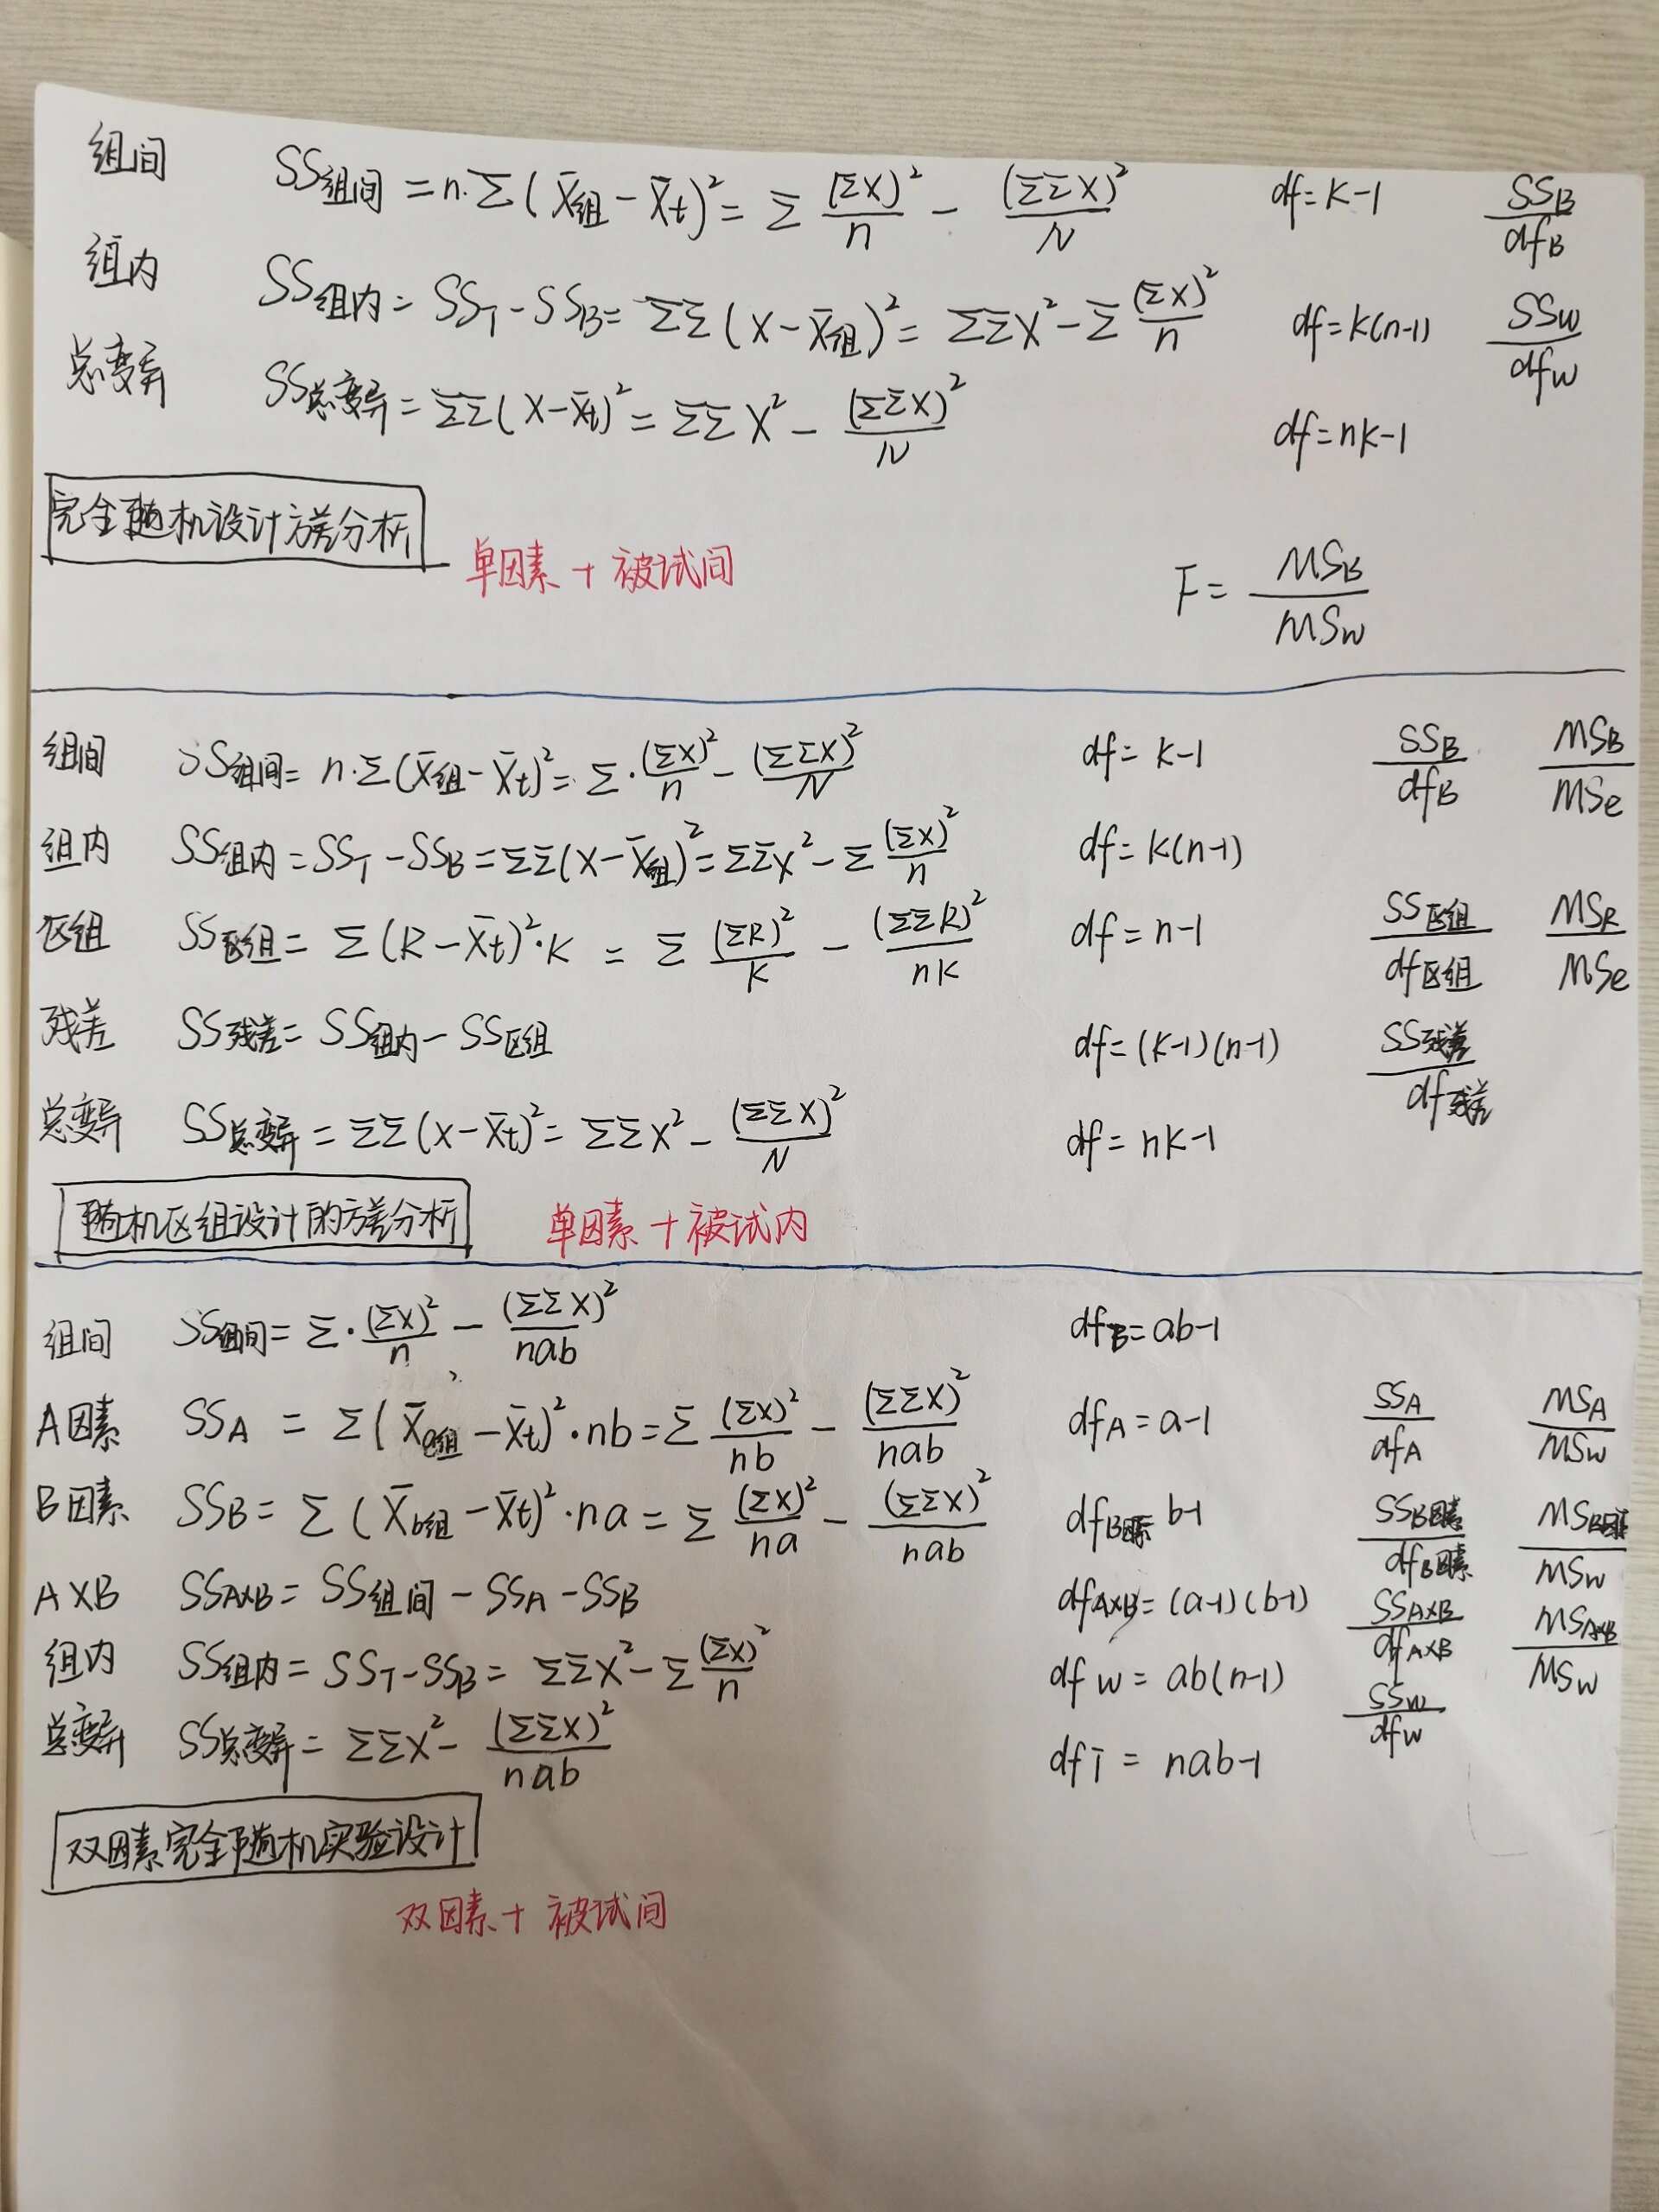 组间 SS组间 = n·Σ(X̄组 - X̄t)² = Σ (ΣX)²/n - (ΣΣX)²/N df = K-1 SSB/dfB
组内 SS组内 = SST - SSB = ΣΣ(X - X̄组)² = ΣΣX² - Σ (ΣX)²/n df = K(n-1) SSW/dfW
总变异 SS总变异 = ΣΣ(X - X̄t)² = ΣΣX² - (ΣΣX)²/N df = nK-1
完全随机设计方差分析 单因素 + 被试间
F = MSB/MSW
组间 SS组间 = n·Σ(X̄组 - X̄t)² = Σ·(ΣX)²/n - (ΣΣX)²/N df = K-1 SSB/dfB MSB/MSe
组内 SS组内 = SST - SSB = ΣΣ(X - X̄组)² = ΣΣX² - Σ (ΣX)²/n df = K(n-1)
区组 SS区组 = Σ(R - X̄t)²·K = Σ (ΣR)²/K - (ΣΣR)²/nK df = n-1 SS区组/df区组 MSR/MSe
残差 SS残差 = SS组内 - SS区组 df = (K-1)(n-1) SS残差/df残差
总变异 SS总变异 = ΣΣ(X - X̄t)² = ΣΣX² - (ΣΣX)²/N df = nK-1
随机区组设计的方差分析 单因素 + 被试内
组间 SS组间 = Σ·(ΣX)²/n - (ΣΣX)²/nab dfB = ab-1
A因素 SSA = Σ(X̄a组 - X̄t)²·nb = Σ (ΣX)²/nb - (ΣΣX)²/nab dfA = a-1 SSA/dfA MSA/MSW
B因素 SSB = Σ(X̄b组 - X̄t)²·na = Σ (ΣX)²/na - (ΣΣX)²/nab dfB因素 = b-1 SSB因素/dfB因素 MSB因素/MSW
A×B SSA×B = SS组间 - SSA - SSB dfA×B = (a-1)(b-1) SSA×B/dfA×B MSA×B/MSW
组内 SS组内 = SST - SSB = ΣΣX² - Σ (ΣX)²/n dfW = ab(n-1) SSW/dfW
总变异 SS总变异 = ΣΣX² - (ΣΣX)²/nab dfT = nab-1
双因素完全随机实验设计
双因素 + 被试间